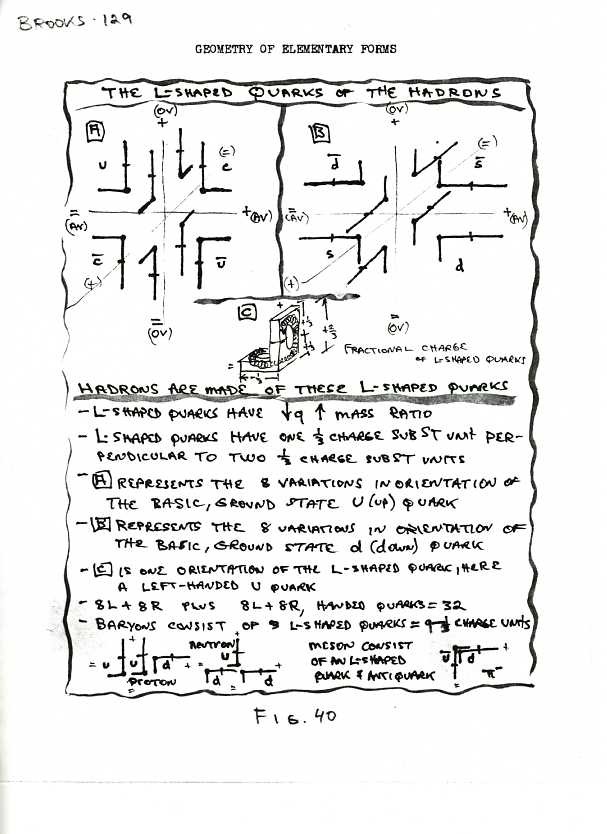 BROOKS-129
GEOMETRY OF ELEMENTARY FORMS
THE L-SHAPED QUARKS OF THE HADRONS
(OV) (OV)
+ +
A B
u (=) c d̅ (=) s̅
= (AV) +(AV) = (AV) +(AV)
c̅ u̅ s d
(+) (+)
= (OV) = (OV)
C + +⅓ +⅔ +⅓
= -⅓
FRACTIONAL CHARGE
OF L-SHAPED QUARKS
HADRONS ARE MADE OF THESE L-SHAPED QUARKS
- L-SHAPED QUARKS HAVE ↓q ↑ MASS RATIO
- L-SHAPED QUARKS HAVE ONE ⅓ CHARGE SUBST UNIT PER-
PENDICULAR TO TWO ⅓ CHARGE SUBST UNITS
- A REPRESENTS THE 8 VARIATIONS IN ORIENTATION OF
THE BASIC, GROUND STATE U (UP) QUARK
- B REPRESENTS THE 8 VARIATIONS IN ORIENTATION OF
THE BASIC, GROUND STATE d (down) QUARK
- C IS ONE ORIENTATION OF THE L-SHAPED QUARK, HERE
A LEFT-HANDED U QUARK
- 8L + 8R PLUS 8L + 8R, HANDED QUARKS = 32
- BARYONS CONSIST OF 3 L-SHAPED QUARKS = 9 ⅓ CHARGE UNITS
+ NEUTRON + MESON CONSIST
= u u d + = u + OF AN L-SHAPED u̅ d +
PROTON d d QUARK & ANTIQUARK π⁻
= = =
FIG. 40